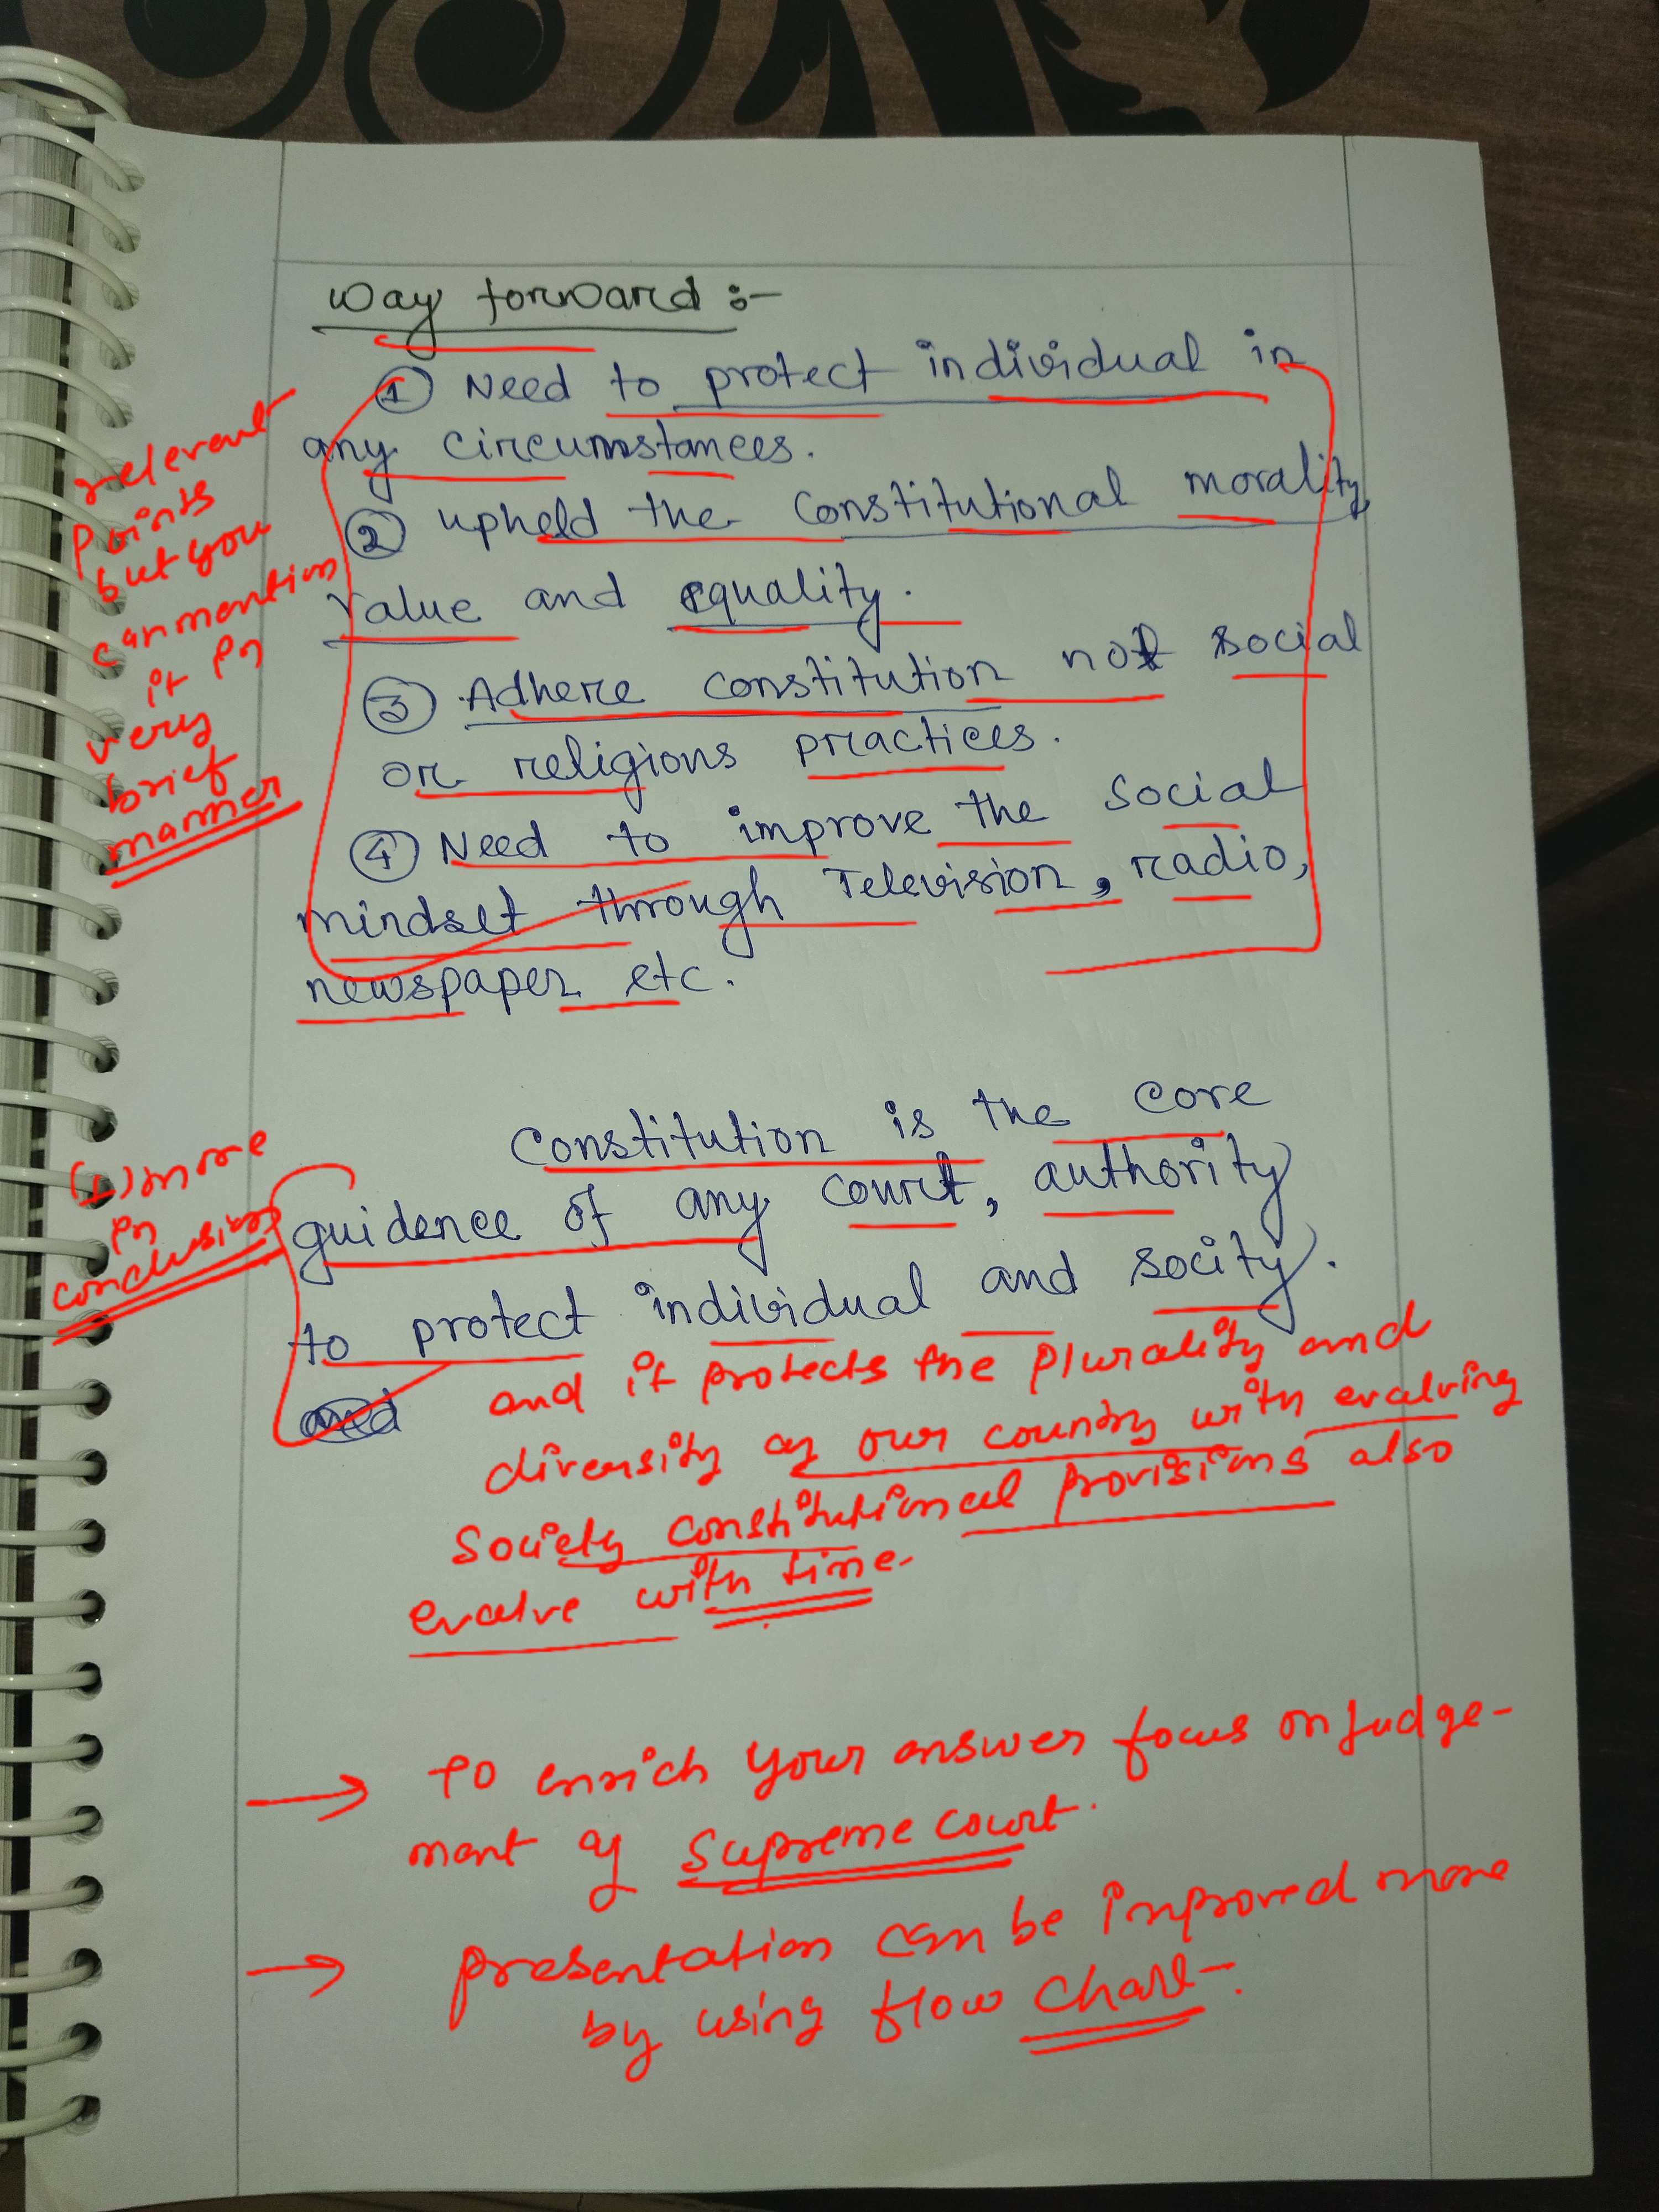 Way forward :-
① Need to protect individual in
any circumstances.
② upheld the Constitutional morality,
value and equality.
③ Adhere constitution not social
or religions practices.
④ Need to improve the social
mindset through Television, radio,
newspaper etc.
relevant
points
but you
can mention
it in
very
brief
manner
Constitution is the core
guidence of any court, authority
to protect individual and socity.
and
(1) more
in
conclusion
and it protects the plurality and
diversity of our country with evalving
Society constitutional provisions also
evalve with time.
→ to enrich your answer focus on Judge-
ment of Supreme court.
→ presentation can be improved more
by using flow chart.